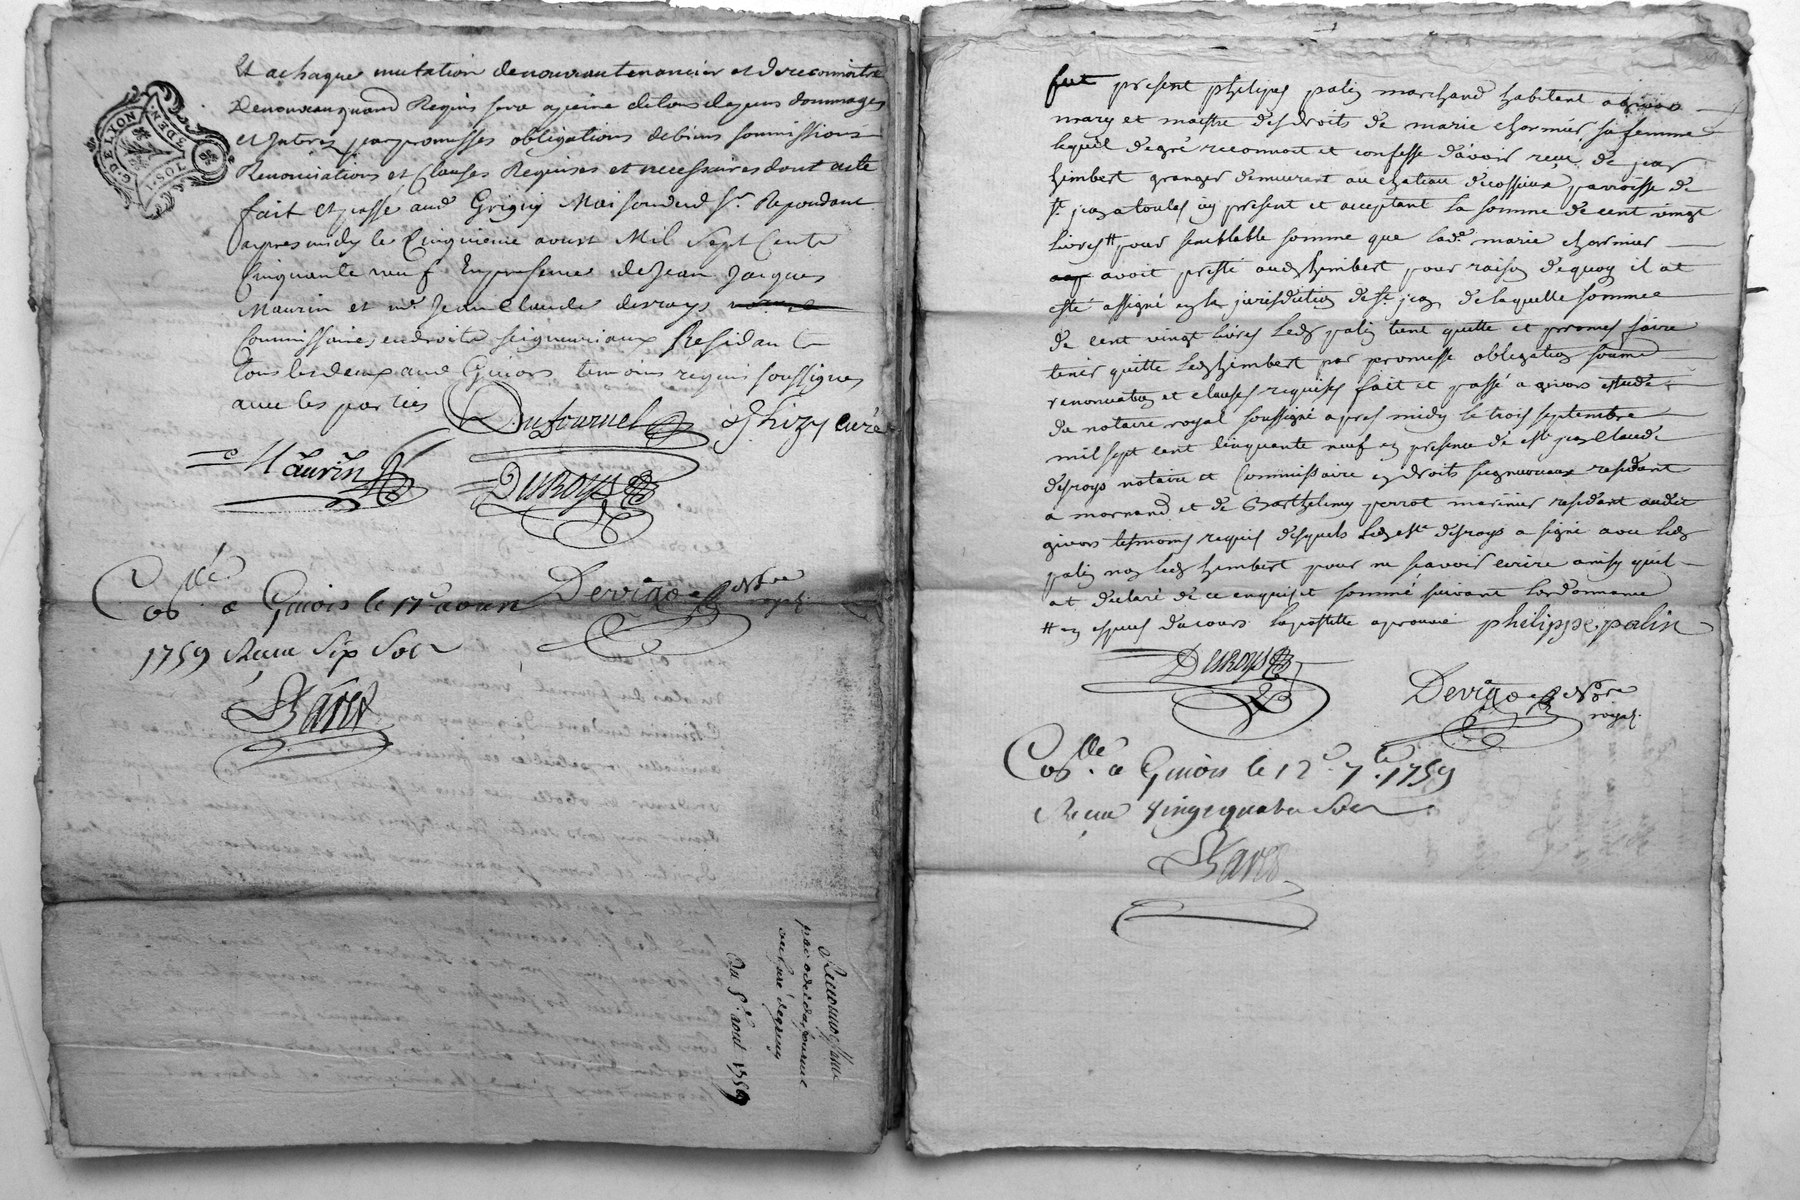 Et a chaque mutation de nouveau tenancier et de reconnoitre
De nouveau quand Requis sera a peine de tous depens dommages
et Interes par promesses obligations de biens soumissions
Renonciations et Clauses Requises et necessaires dont acte
fait et passé aud Grigny Maison dud Sr. Repondant
apres midy le Cinquieme aoust Mil Sept Cents
Cinquante neuf En presence de Jean Jacques
Maurin et me Jean Claude desroys
Commissaire en droits seigneuriaux Residants
tous les deux aud Givors temoins requis soussignes
avec les parties
G. DE LYON
Dufournel
curé
Maurin
Desroys
Devigo Nore royal
Collé a Givors le 17e aoust
1759 Receu Six Sols
Reconnoissance
au curé de grigny
Du 5e aout 1759
fut present philipes palin marchand habitant a givors
mary et maistre des droits de marie chormier sa femme
lequel de gré reconnoit et confesse d'avoir receu de jean
himbert granger demeurant au chateau de cossieux parroisse de
st. jean a toulas icy present et acceptant la somme de cent vingt
livres # pour semblable somme que lade. marie chormier
avoit presté aud himbert pour raison de quoy il at
esté assigné en la jurisdiction de st jean de laquelle somme
de cent vingt livres led palin tient quitte et promes faire
tenir quitte led himbert par promesse obligation soumis
renonciation et clauses requises fait et passé a givors etude
du notaire royal soussigné apres midy le trois septembre
mil sept cent cinquante neuf en presence de me jean Claude
desroys notaire et Commissaire en droits seigneuriaux residant
a mornand et de Barthelemy perrot marinier residant audit
givors tesmoins requis desquels led me desroys a signé avec led
palin non led himbert pour ne scavoir ecrire ainsy qu'il
at declaré de ce enquis et sommé suivant lordonnance
# en especes d'acours lapostille aprouvé philippe palin
Desroys
Devigo Nore royal
Collé a Givors le 12e 7bre 1759
Receu Vingt quatre Sols